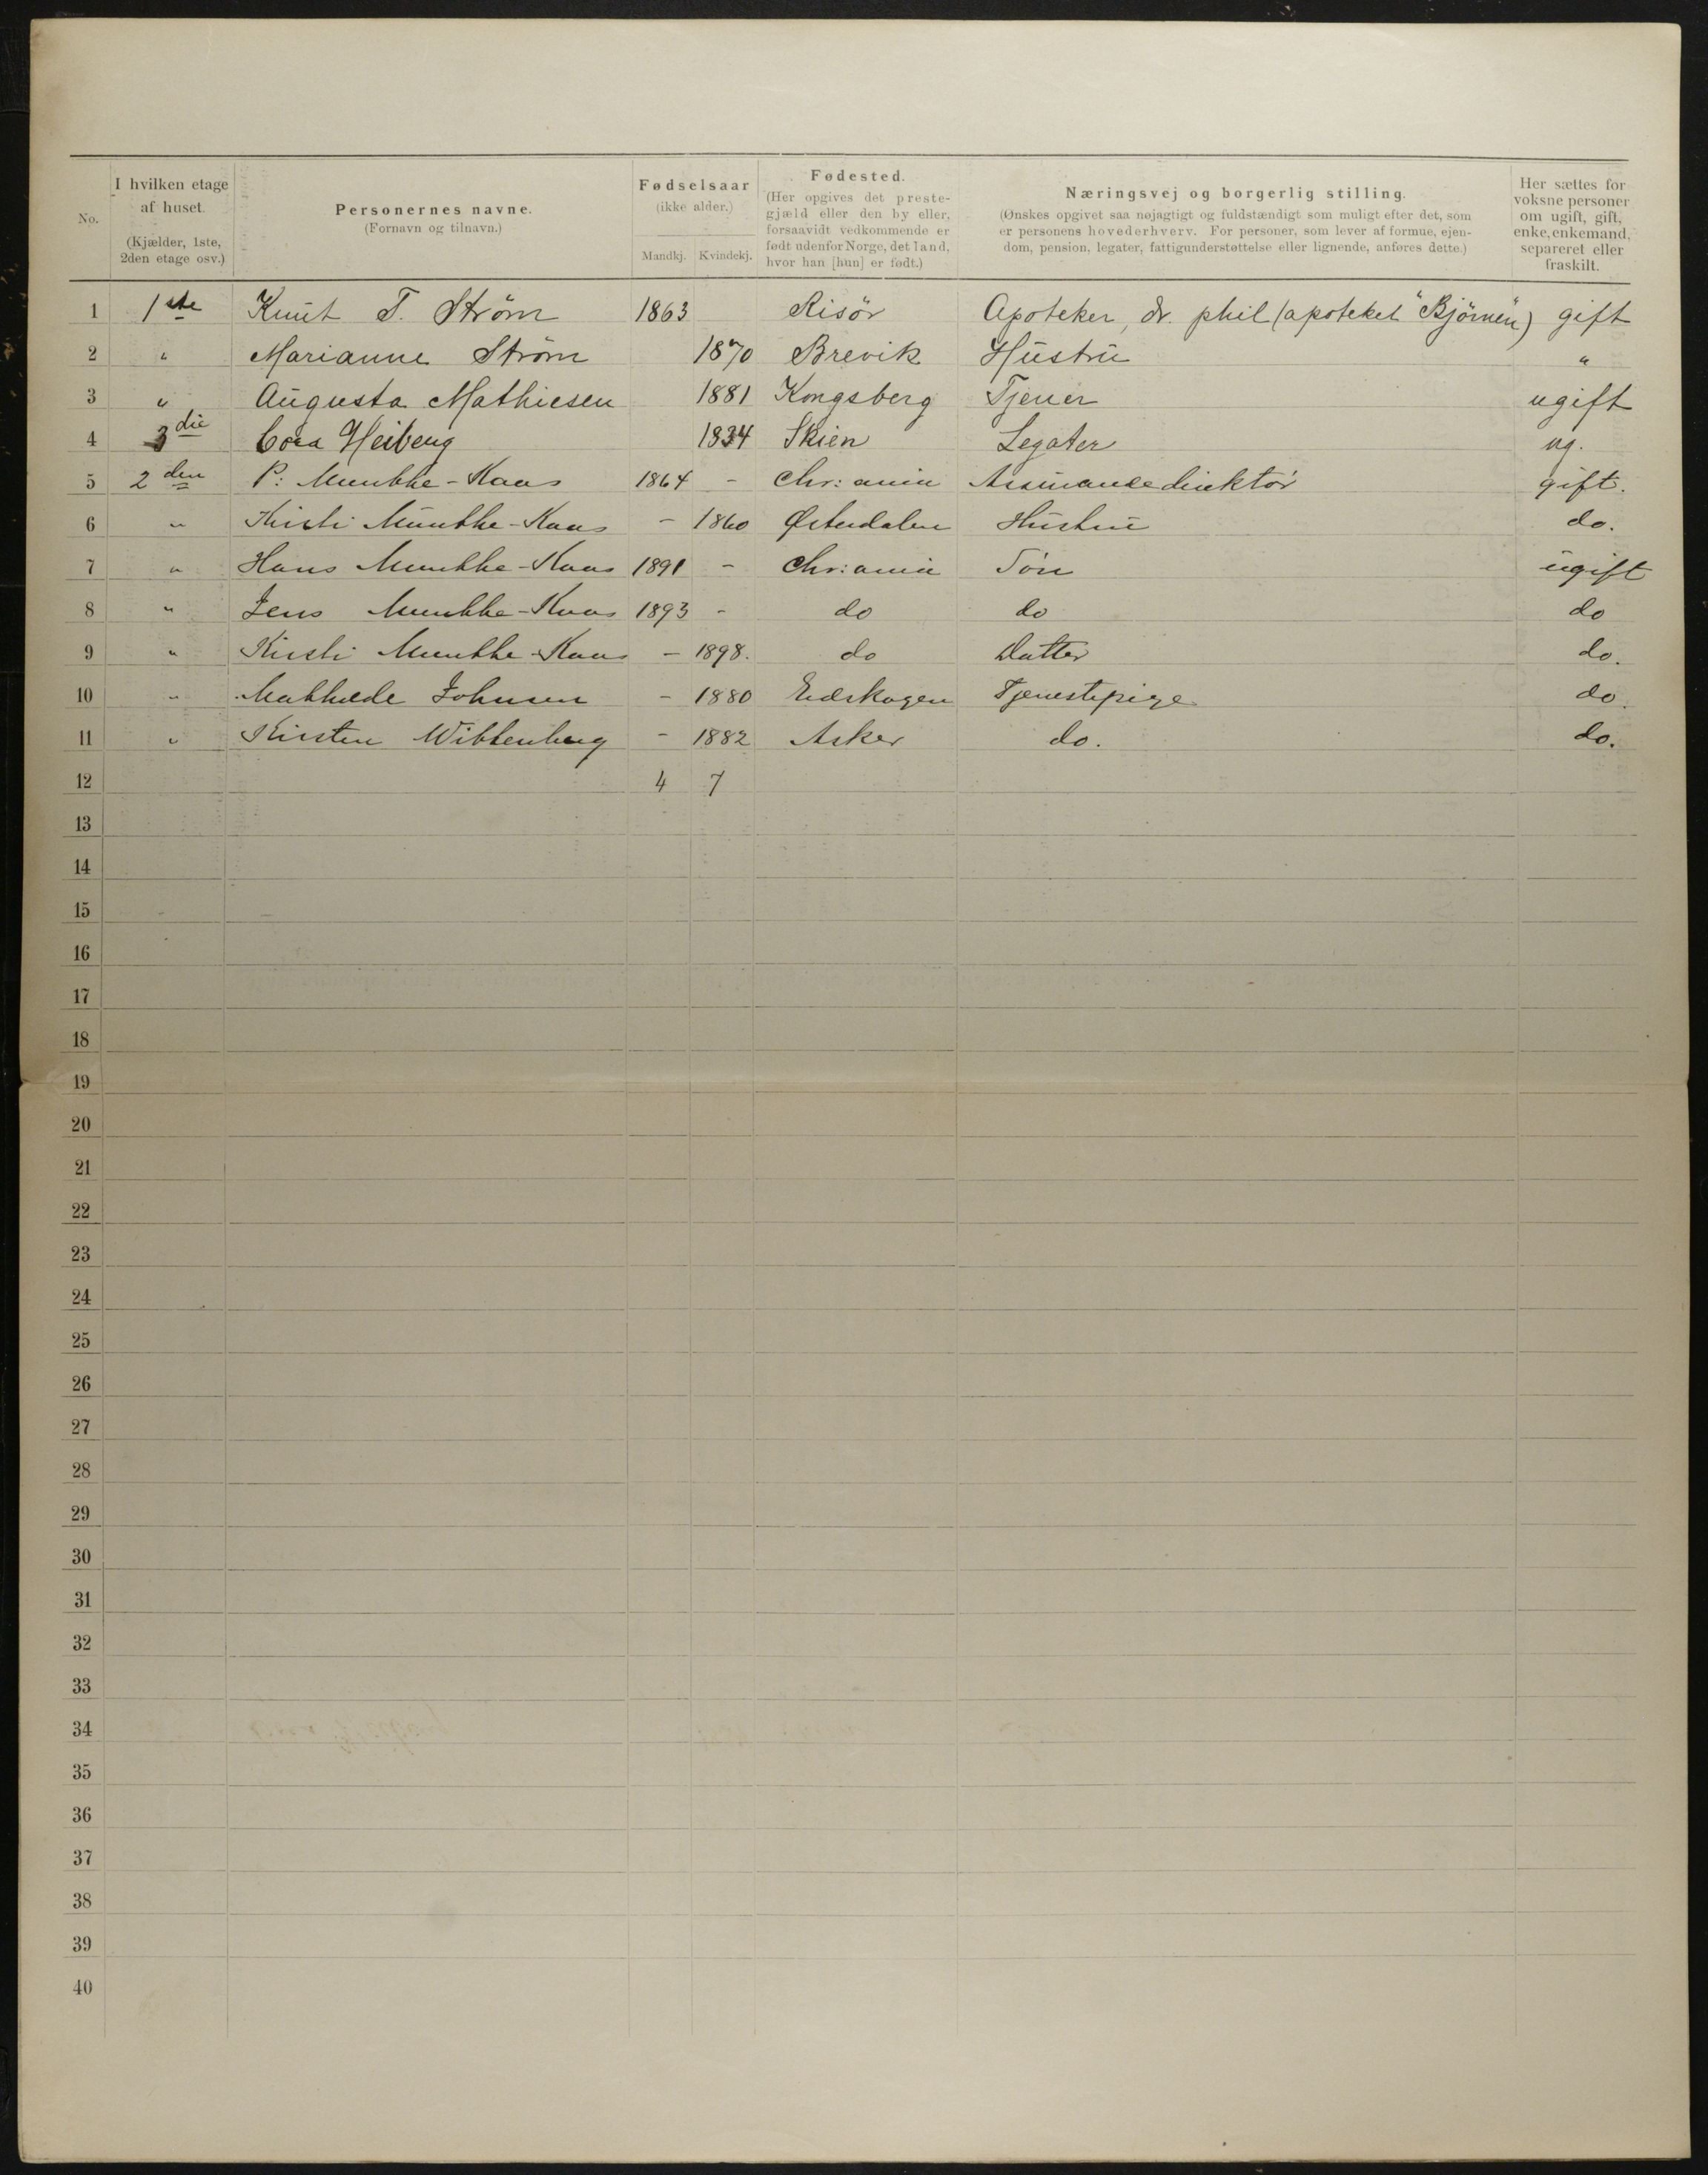 No.
I hvilken etage af huset.
(Kjælder, 1ste, 2den etage osv.)
Personernes navne.
(Fornavn og tilnavn.)
Fødselsaar
(ikke alder.)
Mandkj. Kvindekj.
Fødested.
(Her opgives det prestegjæld eller den by eller, forsaavidt vedkommende er født udenfor Norge, det land, hvor han [hun] er født.)
Næringsvej og borgerlig stilling.
(Ønskes opgivet saa nøjagtigt og fuldstændigt som muligt efter det, som er personens hovederhverv. For personer, som lever af formue, ejendom, pension, legater, fattigunderstøttelse eller lignende, anføres dette.)
Her sættes for voksne personer om ugift, gift, enke, enkemand, separeret eller fraskilt.
1 1ste Knut T. Strøm 1863 Risør Apoteker, dr. phil (apoteket "Bjørnen") gift
2 " Marianne Strøm 1870 Brevik Hustru "
3 " Augusta Mathiesen 1881 Kongsberg Tjener ugift
4 3die Heiberg 1834 Skien Legater ug.
5 2den P. Munthe-Kaas 1864 - Chr:ania Assurancedirektør gift.
6 " Kirsti Munthe-Kaas - 1860 Østerdalen Hustru do.
7 " Hans Munthe-Kaas 1891 - Chr:ania Søn ugift
8 " Jens Munthe-Kaas 1893 - do do do
9 " Kirsti Munthe-Kaas - 1898. do Datter do.
10 " Mathilde Johnsen - 1880 Eidskogen Tjenestepige do.
11 " Kirsten Wittenberg - 1882 Asker do. do.
12 4 7
13
14
15
16
17
18
19
20
21
22
23
24
25
26
27
28
29
30
31
32
33
34
35
36
37
38
39
40